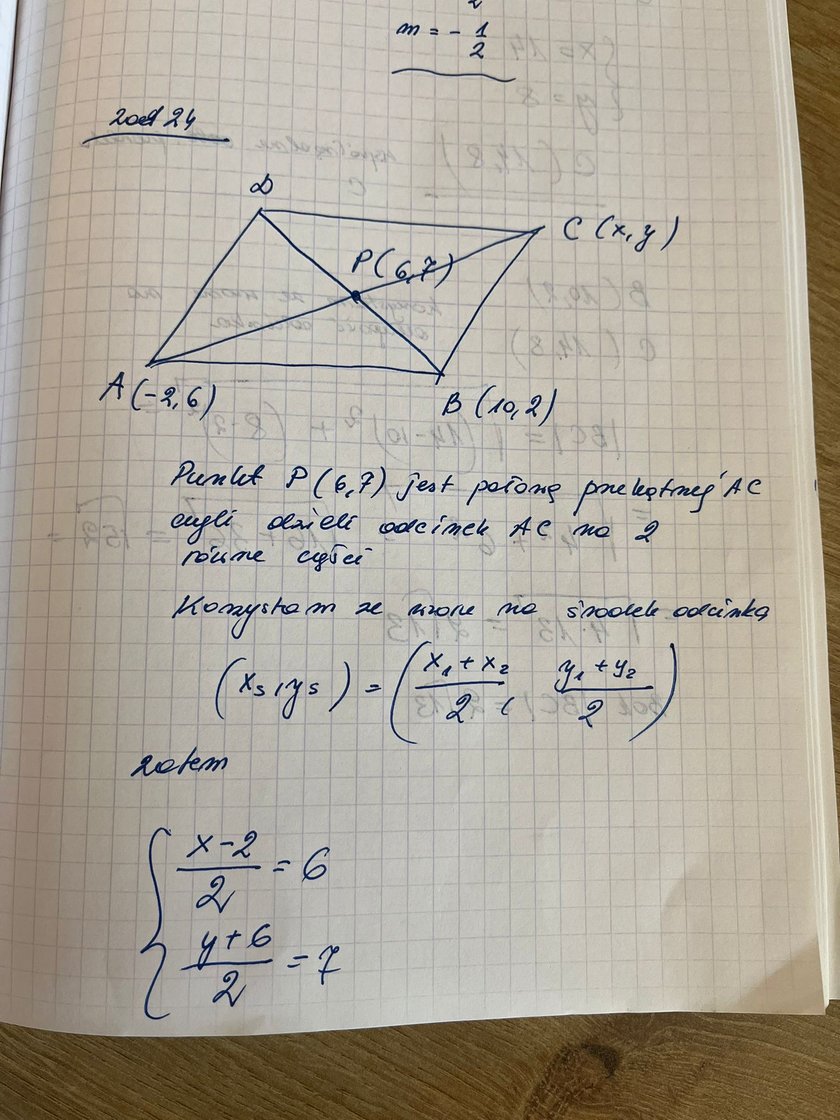 m = - 1/2
zad 24
D
C (x, y)
P (6,7)
A (-2,6)
B (10,2)
Punkt P (6,7) jest połową przekątnej AC
czyli dzieli odcinek AC na 2
równe części
Korzystam ze wzoru na środek odcinka
(xs, ys) = ( (x₁ + x₂)/2 , (y₁ + y₂)/2 )
zatem
{ (x-2)/2 = 6
(y+6)/2 = 7